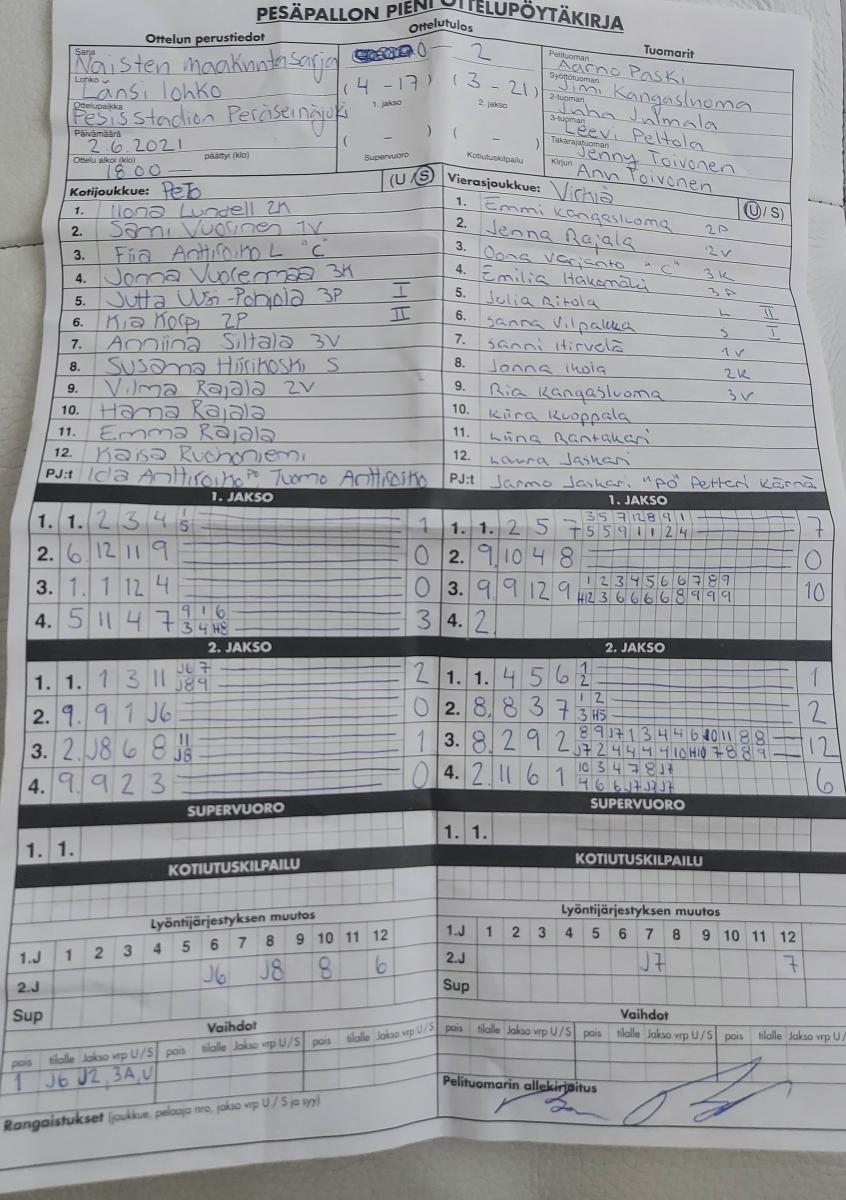 PESÄPALLON PIENI OTTELUPÖYTÄKIRJA
Ottelun perustiedot
Ottelutulos
Tuomarit
Sarja
Naisten maakuntasarja
0 - 2
Lohko
Länsi lohko
(4 - 17) (3 - 21)
1. jakso 2. jakso
Ottelupaikka
Pesis stadion Peräseinäjoki
Päivämäärä
2.6.2021
( - ) ( - )
Supervuoro Kotiutuskilpailu
Ottelu alkoi (klo) päättyi (klo)
18.00 —
Pelituomari
Aarno Paski
Syöttötuomari
Jimi Kangasluoma
2-tuomari
Juha Julmala
3-tuomari
Leevi Peltola
Takarajatuomari
Jenny Toivonen
Kirjuri
Ann Toivonen
Kotijoukkue: PeTo (U/S)
1. Ilona Lundell 2K
2. Sami Vuorinen 1V
3. Fiia Anttiroiko L "C"
4. Jonna Vuorenmaa 3K
5. Jutta Uusi-Pohjola 3P I
6. Kia Korpi 2P II
7. Anniina Siltala 3V
8. Susanna Hiirikoski S
9. Vilma Rajala 2V
10. Hanna Rajala
11. Emma Rajala
12. Kaisa Ruohoniemi
PJ:t Iida Anttiroiko PO, Tuomo Anttiroiko
Vierasjoukkue: Virkiä (U/S)
1. Emmi Kangasluoma 2P
2. Jenna Rajala 2V
3. Oona Varjanto "C" 3K
4. Emilia Hakomäki 3P
5. Julia Ritola L II
6. Sanna Vilpakka S I
7. Sanni Hirvelä 1V
8. Jonna Ikola 2K
9. Ria Kangasluoma 3V
10. Kiira Kuoppala
11. Liina Rantakari
12. Laura Jaskari
PJ:t Jarmo Jaskari "PO" Petteri Kärnä
1. JAKSO
1. 1. 2 3 4 1 1
5
2. 6. 12 11 9 0
3. 1. 1 12 4 0
4. 5 11 4 7 9 1 6 3
3 4 H8
1. JAKSO
1. 1. 2 5 7 3 5 7 12 8 9 1 7
5 5 9 1 1 2 4
2. 9. 10 4 8 0
3. 9 9 12 9 1 2 3 4 5 6 6 7 8 9 10
H12 3 6 6 6 6 8 9 9 9
4. 2.
2. JAKSO
1. 1. 1 3 11 J6 7 2
J8 9
2. 9. 9 1 J6 0
3. 2. J8 6 8 11 1
J8
4. 9. 9 2 3 0
2. JAKSO
1. 1. 4 5 6 1 1
2
2. 8. 8 3 7 1 2 2
3 H5
3. 8. 2 9 2 8 9 J7 1 3 4 4 6 10 11 8 8 12
J7 2 4 4 4 4 10 H10 7 8 8 9
4. 2. 11 6 1 10 3 4 7 8 J7 6
4 6 6 J7 J7 J7
SUPERVUORO
1. 1.
SUPERVUORO
1. 1.
KOTIUTUSKILPAILU
KOTIUTUSKILPAILU
Lyöntijärjestyksen muutos
1.J 1 2 3 4 5 6 7 8 9 10 11 12
2.J J6 J8 8 6
Sup
Lyöntijärjestyksen muutos
1.J 1 2 3 4 5 6 7 8 9 10 11 12
2.J J7 7
Sup
Vaihdot
pois tilalle Jakso vrp U/S pois tilalle Jakso vrp U/S pois tilalle Jakso vrp U/S
1 J6 J2, 3A, U
Rangaistukset (joukkue, pelaaja nro, jakso vrp U / S ja syy)
Vaihdot
pois tilalle Jakso vrp U/S pois tilalle Jakso vrp U/S pois tilalle Jakso vrp U/
Pelituomarin allekirjoitus